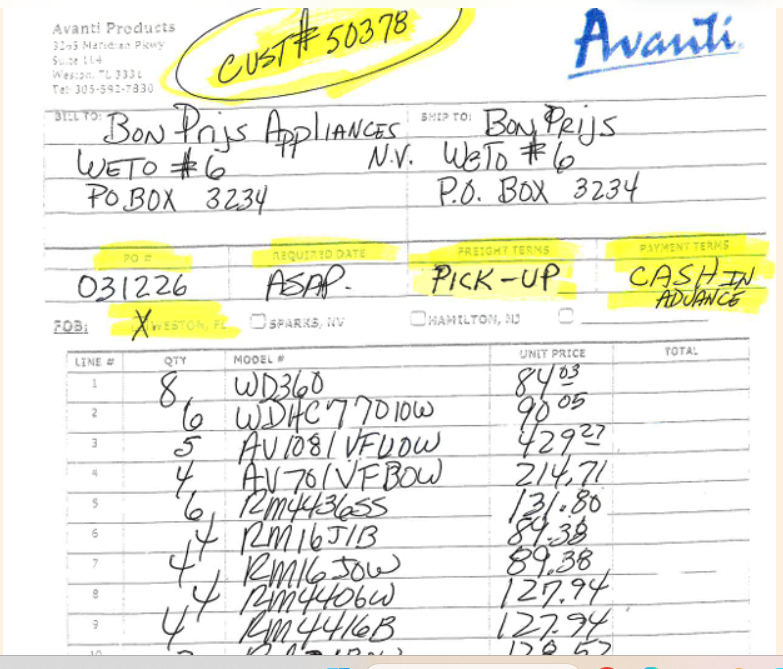 Avanti Products
3265 Meridian Pkwy
Suite 114
Weston, FL 3331
Tel: 305-592-7830
CUST# 50378
Avanti
BILL TO: BON Prijs APPLIANCES N.V.
WETO #6
PO BOX 3234
SHIP TO: BON PRIJS
WETO #6
P.O. BOX 3234
PO # REQUIRED DATE FREIGHT TERMS PAYMENT TERMS
031226 ASAP. PICK-UP CASH IN ADVANCE
FOB: X WESTON, FL SPARKS, NV HAMILTON, NJ
LINE # QTY MODEL # UNIT PRICE TOTAL
1 8 WD360 84 03
2 6 WDHC770I0W 90 05
3 5 AV1081VFU0W 429 27
4 4 AV701VFB0W 214.71
5 6 RM4436SS 131.80
6 4 RM16J1B 89.38
7 4 RM16J0W 89.38
8 4 RM4406W 127.94
9 4 RM4416B 127.94
10